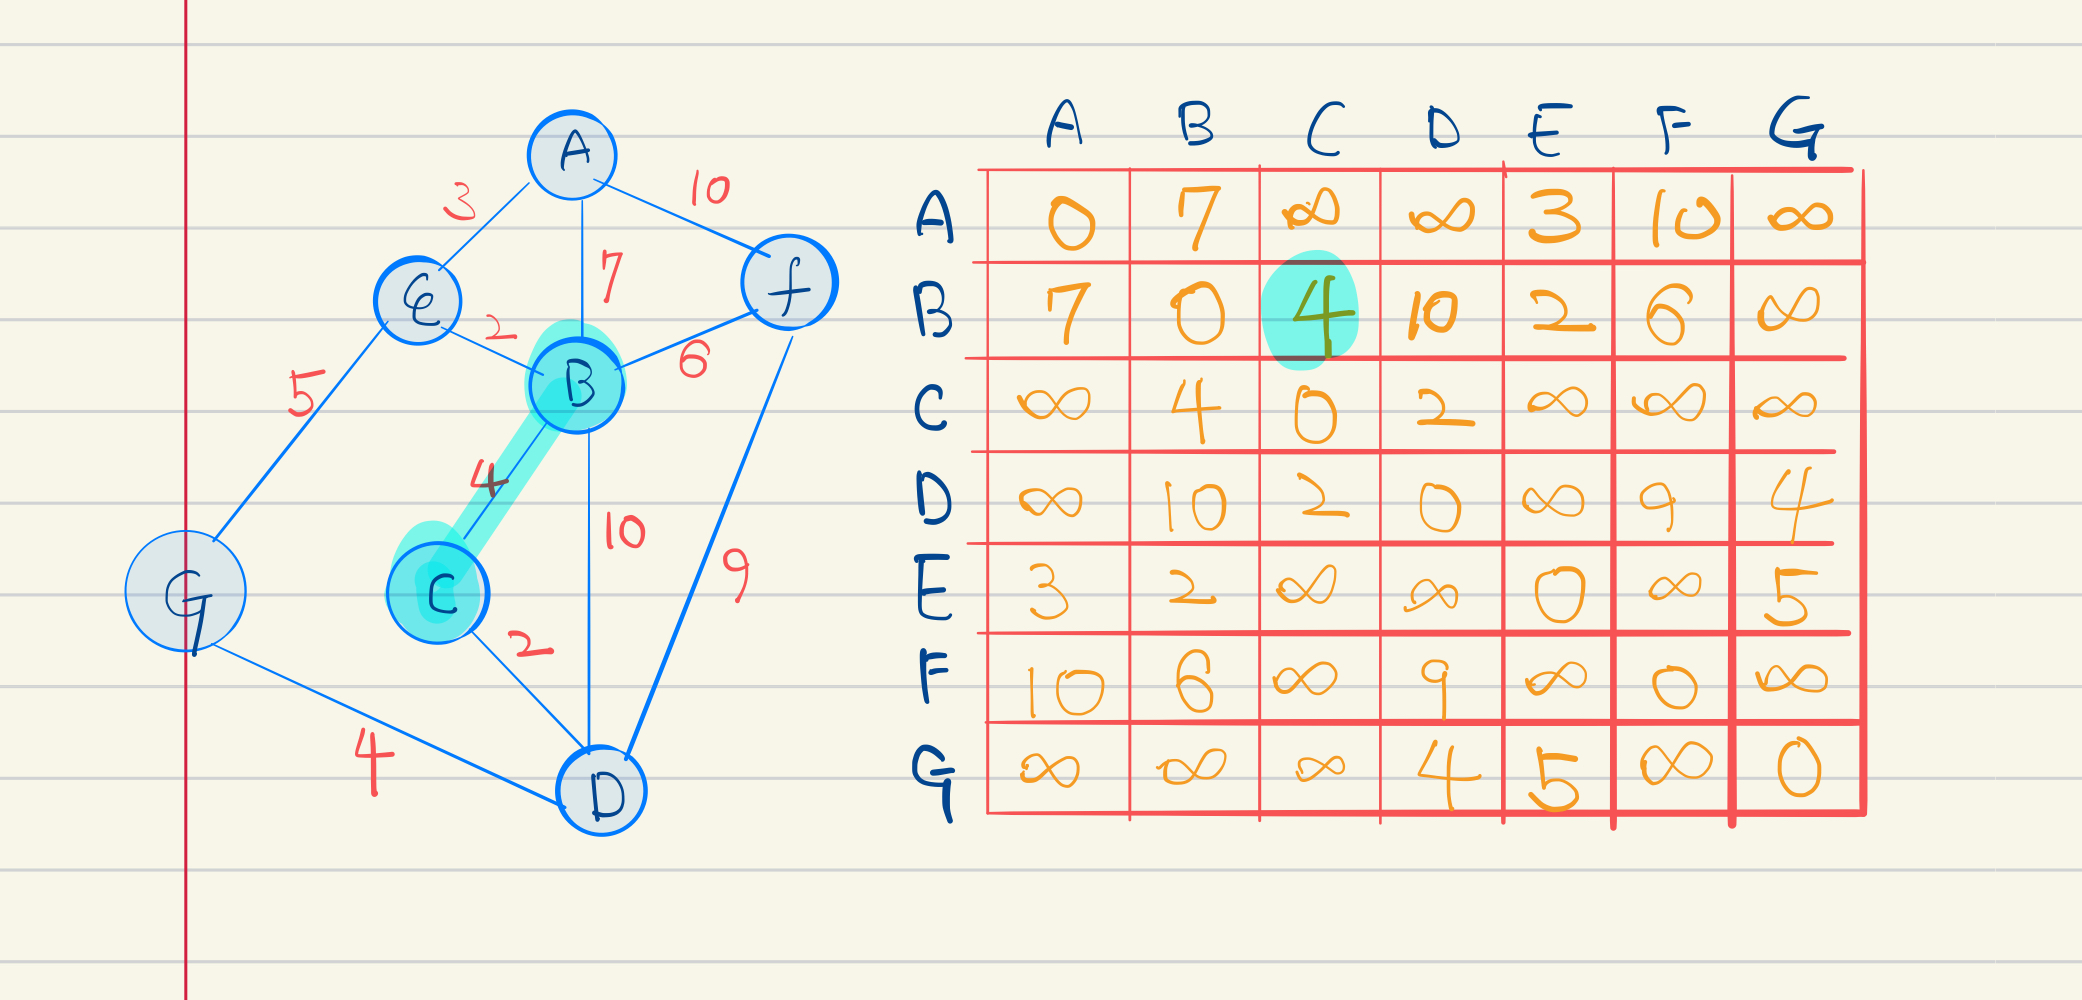 A
3
10
E
7
f
2
B
6
5
4
10
9
G
C
2
4
D
A B C D E F G
A 0 7 ∞ ∞ 3 10 ∞
B 7 0 4 10 2 6 ∞
C ∞ 4 0 2 ∞ ∞ ∞
D ∞ 10 2 0 ∞ 9 4
E 3 2 ∞ ∞ 0 ∞ 5
F 10 6 ∞ 9 ∞ 0 ∞
G ∞ ∞ ∞ 4 5 ∞ 0